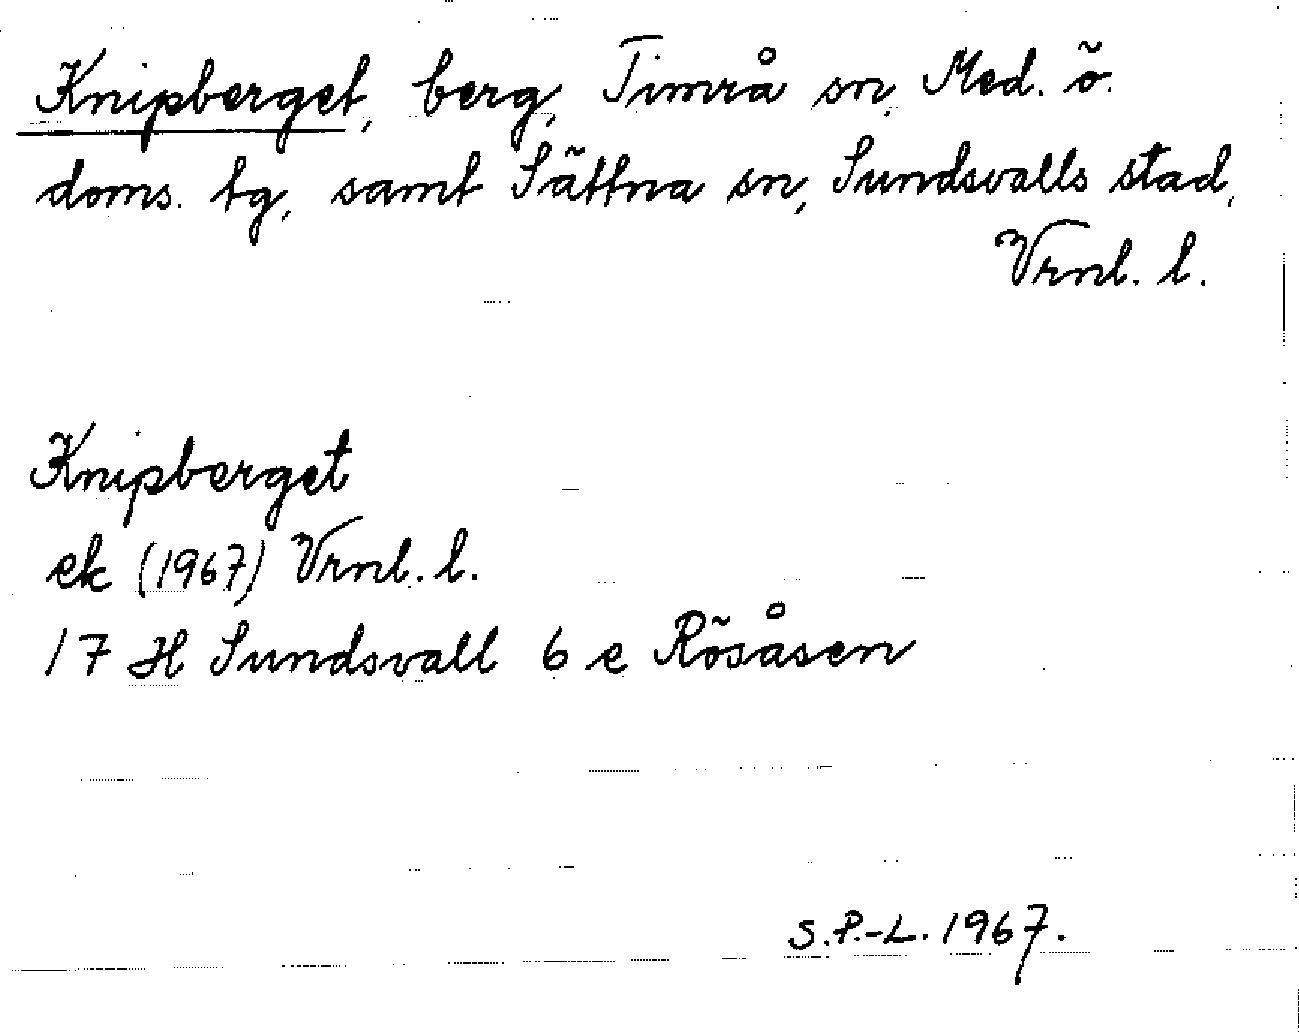 Knipberget, berg, Timrå sn, Med. ö.
doms. tg, samt Sättna sn, Sundsvalls stad,
Vrnl. l.
Knipberget
ek (1967) Vrnl. l.
17 H Sundsvall 6 e Rösåsen
S.P.-L. 1967.